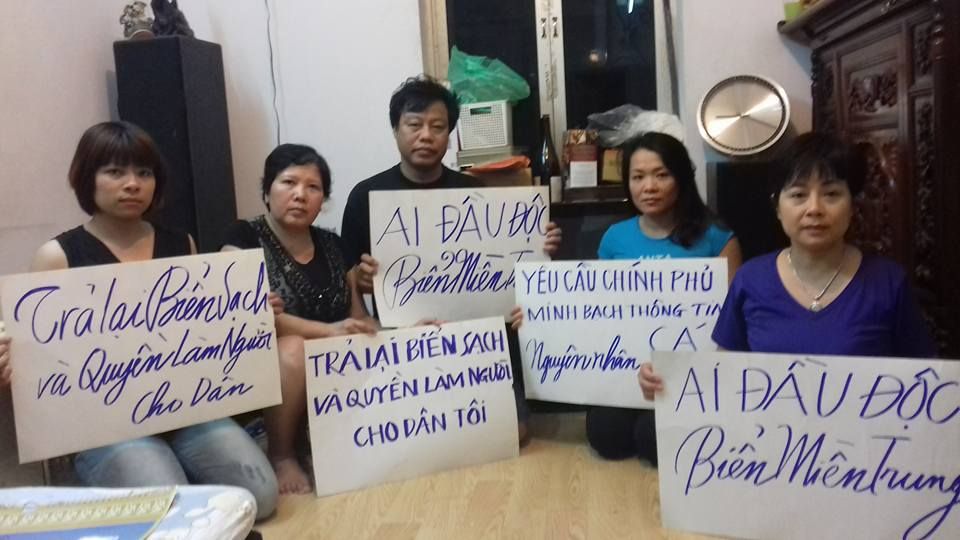 Trả lại Biển Sạch
và Quyền Làm Người
cho Dân
TRẢ LẠI BIỂN SẠCH
VÀ QUYỀN LÀM NGƯỜI
CHO DÂN TÔI
AI ĐẦU ĐỘC
Biển Miền
YÊU CẦU CHÍNH PHỦ
MINH BẠCH THÔNG TIN
Nguyên nhân CÁ
AI ĐẦU ĐỘC
Biển Miền Trung